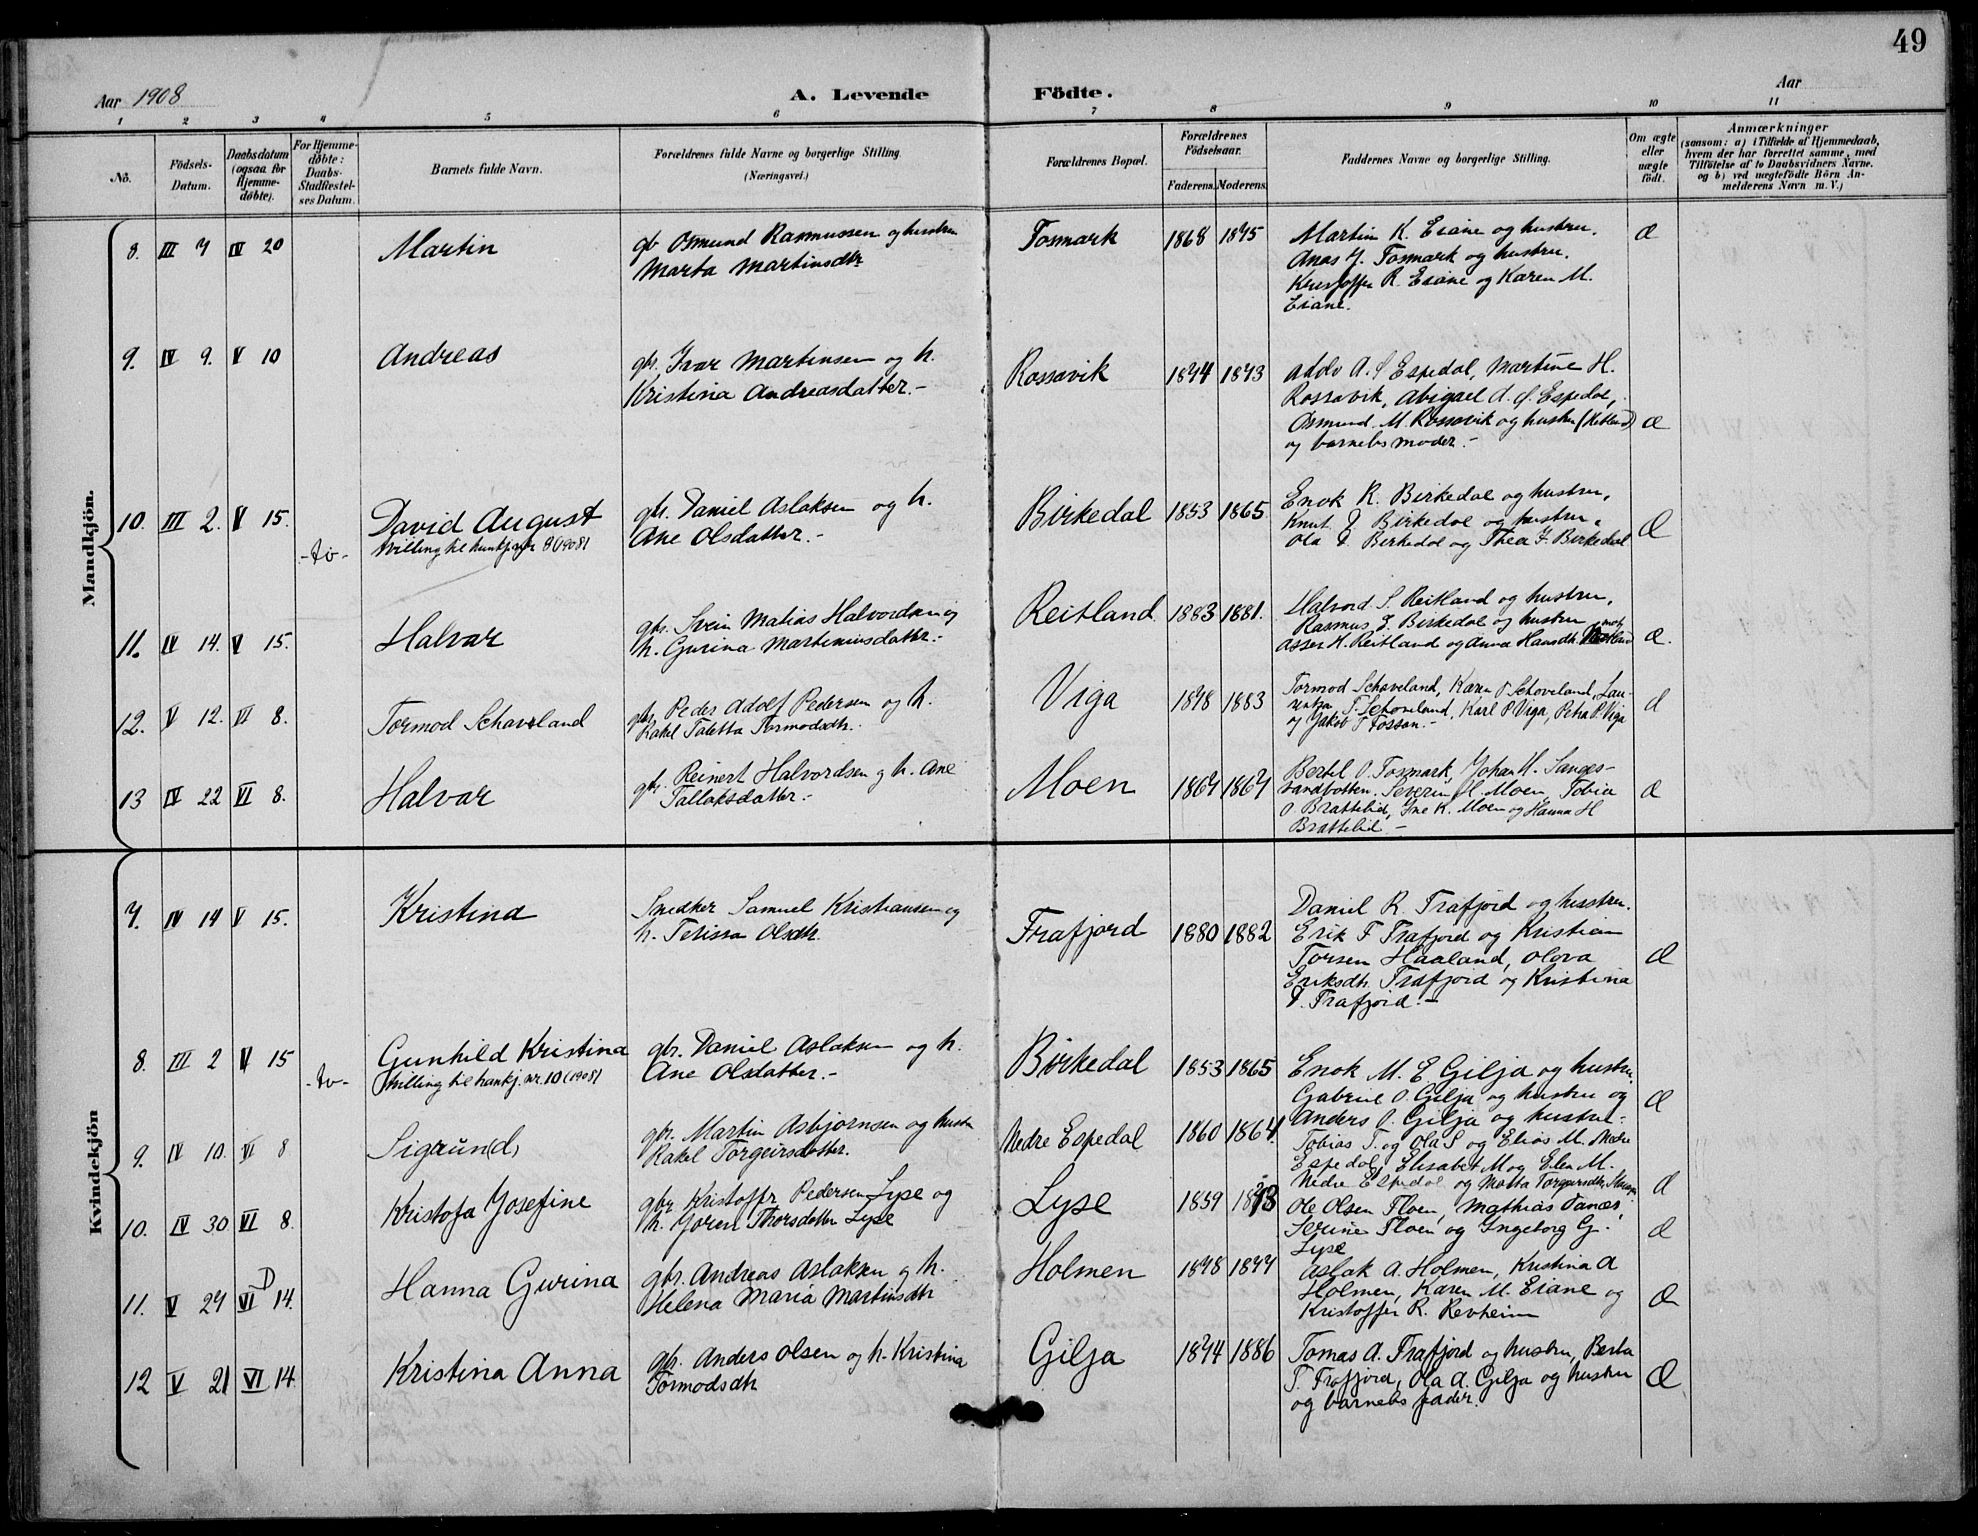 49
Aar 1908
A. Levende Födte.
Aar
1 2 3 4 5 6 7 8 9 10 11
No.
Födsels-Datum.
Daabsdatum (ogsaa for Hjemmedøbte).
For Hjemmedøbte: Daabs-Stadfæstelses Datum.
Barnets fulde Navn.
Forældrenes fulde Navne og borgerlige Stilling. (Næringsvei.)
Forældrenes Bopæl.
Forældrenes Födselsaar.
Faderens. Moderens.
Faddernes Navne og borgerlige Stilling.
Om ægte eller uægte födt.
Anmærkninger (sansom: a) i Tilfælde af Hjemmedaab, hvem der har forrettet samme, med Tilföielse af to Daabsvidners Navne. og b) ved uægtefödte Börn Anmelderens Navn m. V.)
Mandkjön.
8. III 7 IV 20 Martin gb Osmund Rasmussen og hustru Tosmark 1868 1875 Martin K. Eiane og hustru. Æ
Marta Martinsdtr. Anas J. Tosmark og hustru.
Kristoffer R. Eiane og Karen M.
Eiane.
9. IV 9. V 10 Andreas gbr. Ivar Martinsen og h. Rossavik 1874 1873 Adolv A. Ø Espedal, Martine H.
Kristina Andreasdatter.- Rossavik, Abigael A. Ø. Espedal,
Osmund M. Rossavik og hustru (Ketland) Æ
og barnets moder.-
10. III 2. V 15. David August gbr. Daniel Aslaksen og h. Birkedal 1853 1865 Enok R. Birkedal og hustru,
-to- tvilling til kvinkj. nr 8 (1908) Ane Olsdatter.- Knut D Birkedal og hustru, Æ
Ola D. Birkedal og Thea F. Birkedal
11. IV 14. V 15. Halvar gbr. Svein Matias Halvordsen og Reitland 1883 1881. Halvord S. Reitland og hustru,
h. Gurina Martiniusdatter.- Rasmus J. Birkedal og hustru
Asser H. Reitland og Anna Hansdtr. Æ.
12. V 12. VI 8. Tormod Schaveland gbr. Peder Adolf Pedersen og h. Viga 1878 1883 Tormod Schaveland, Karen T Schoveland, Lau-
Rakel Taletta Tormodsdtr. rentza T. Schoveland, Karl P. Viga, Petra P. Viga Æ
og Jakob T Fossan.-
13 IV 22 VI 8. Halvar gbr. Reinert Halvordsen og h. Ane Moen 1867 1867 Bertel O. Tosmark, Johan H. Sanges-
Tallaksdatter.- sandbotten. Severin H. Moen, Tobia Æ
O Brattelid, Ine K. Moen og Hanna H
Brattelid.-
Kvindekjön
7. IV 14 V 15. Kristina Snedker Samuel Kristiansen og Frafjord 1880 1882 Daniel R. Frafjord og hustru.
h. Terissa Olsdtr. Erik F Frafjord og Kristian
Torsen Haaland, Olova Æ
Eriksdtr. Frafjord og Kristina
D. Frafjord.-
8. III 2 V 15 Gunhild Kristina gbr. Daniel Aslaksen og h. Birkedal 1853 1865 Enok M. E Gilja og hustru,
-to- tvilling til hankj. nr. 10 (1908) Ane Olsdatter.- Gabriel O. Gilja og hustru og Æ
Anders O. Gilja og hustru.
9. IV 10. VI 8 Sigrun(d) gbr. Martin Asbjørnsen og hustru Nedre Espedal 1860 1864. Tobias T. og Ola S og Elias M. Nedre
Rakel Torgeirsdatter. Espedal, Elisabet M og Elen M.
Nedre Espedal og Marta Torgeirsdtr. Æ
10. IV 30 VI 8. Kristofa Josefine gbr. Kristoffer Pedersen Lyse og Lyse 1859 1873 Ole Olsen Floen, Mathias Fanæs,
h. Joren Thorsdatter Lyse Serine Floen og Ingeborg G. Æ
Lyse
11. V 27 VI D 14. Hanna Gurina gbr. Andreas Aslaksen og h. Holmen 1878 1877 Aslak A. Holmen, Kristina A
Helena Maria Martinsdtr Holmen, Karen M. Eiane og Æ
Kristoffer R. Revheim
12 V 21 VI 14. Kristina Anna gbr. Anders Olsen og h. Kristina Gilja 1874 1886 Tomas A. Frafjord og hustru, Berta
Tormodsdtr. T. Frafjord, Ola A. Gilja og hustru Æ
og barnets fader.